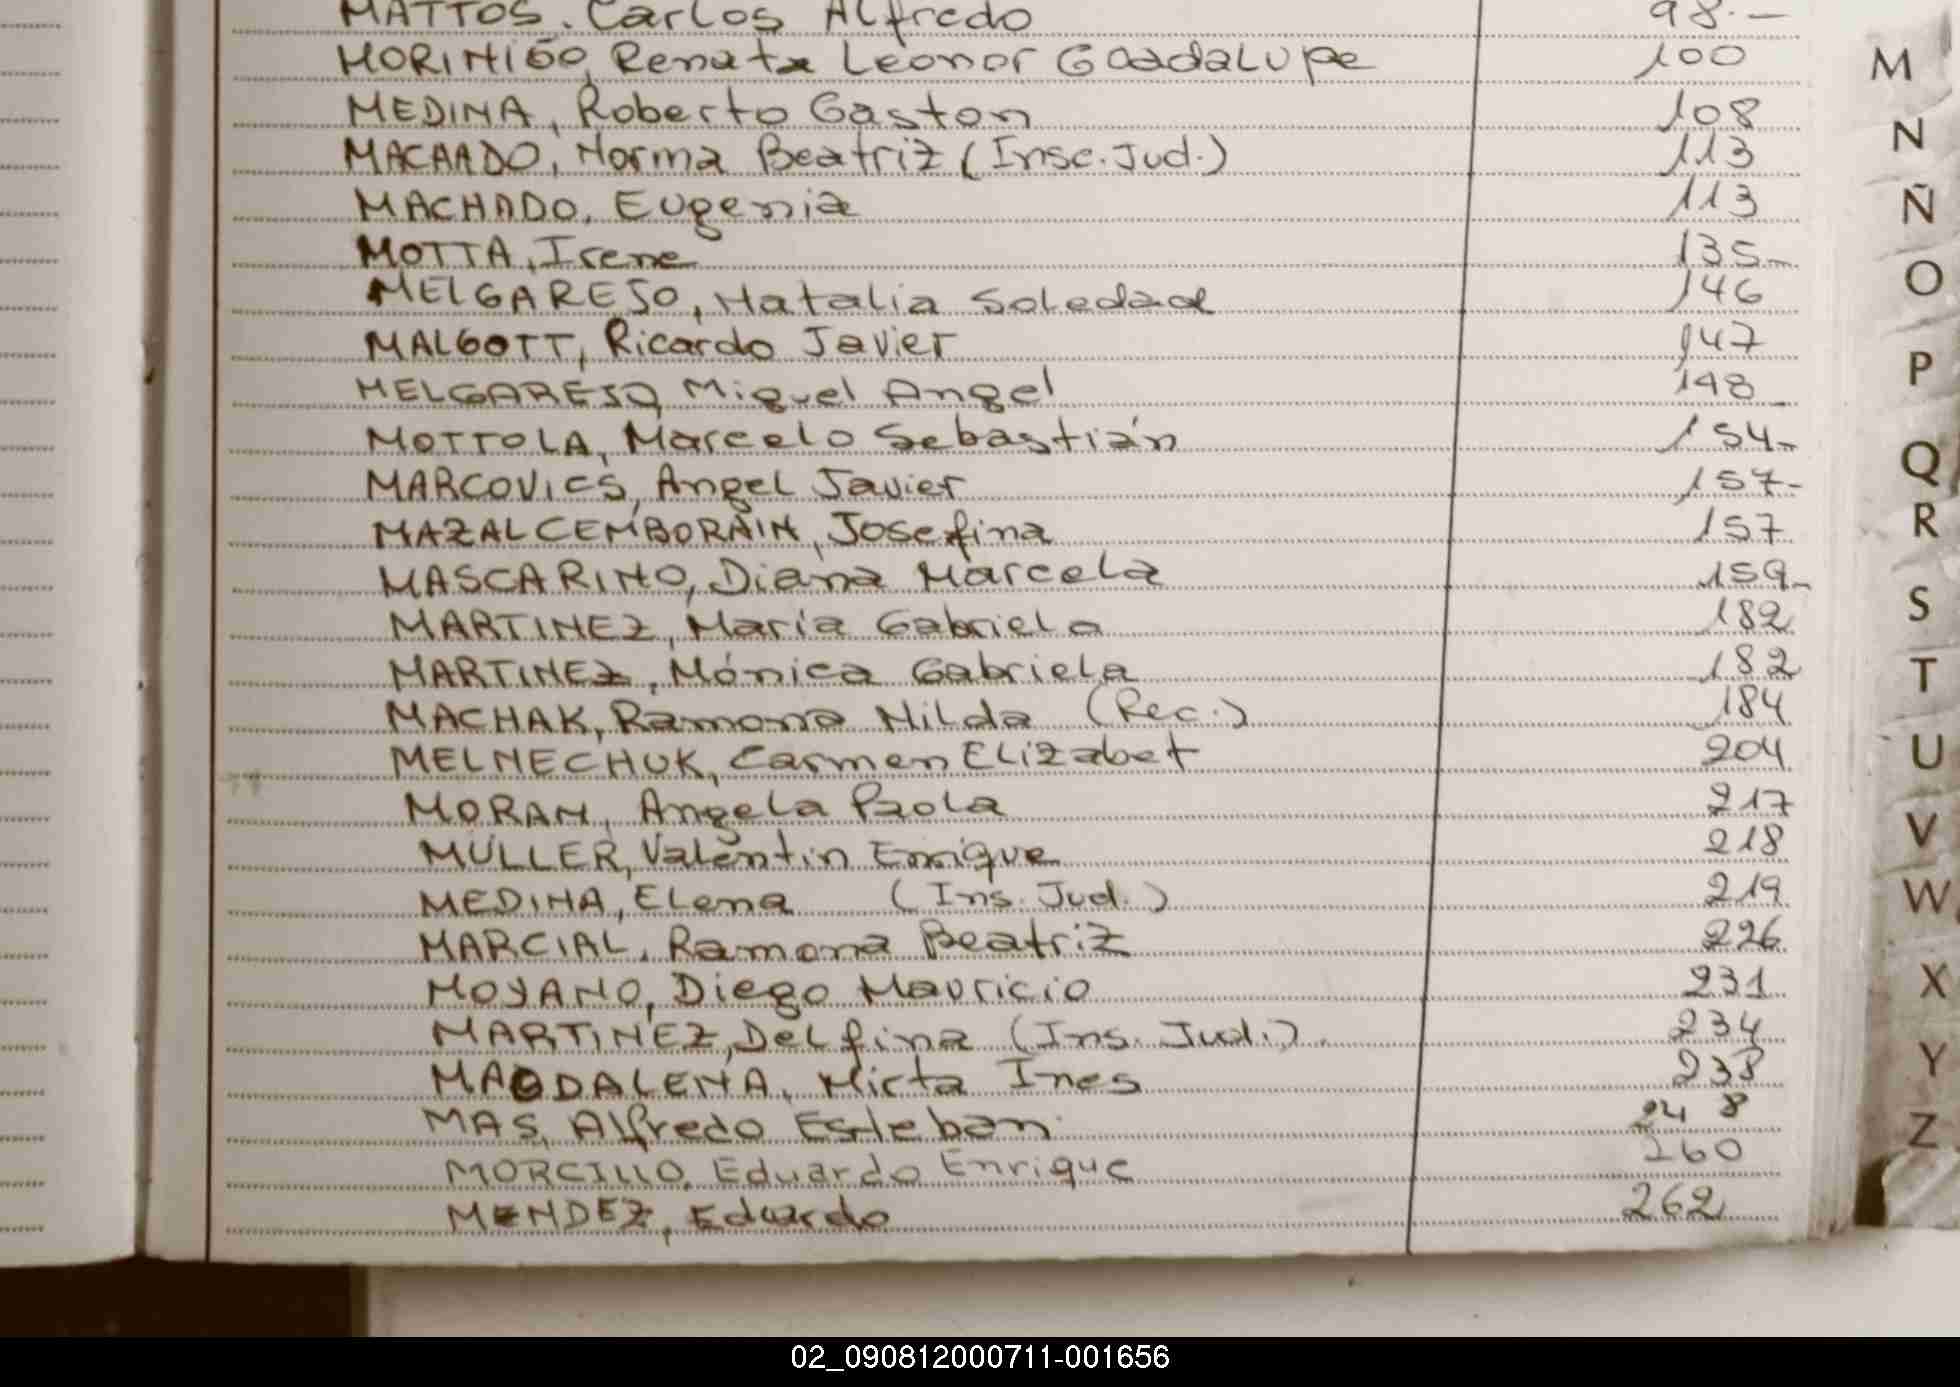 MATTOS, Carlos Alfredo 98.-
MORINIGO, Renata Leonor Guadalupe 100
MEDINA, Roberto Gaston 108
MACHADO, Norma Beatriz (Insc. Jud.) 113
MACHADO, Eugenia 113
MOTTA, Irene 135-
MELGAREJO, Natalia Soledad 146
MALGOTT, Ricardo Javier 147
MELGAREJO, Miguel Angel 148
MOTTOLA, Marcelo Sebastián 154-
MARCOVICS, Angel Javier 157-
MAZALCEMBORAIN, Josefina 157
MASCARINO, Diana Marcela 159-
MARTINEZ, María Gabriela 182
MARTINEZ, Mónica Gabriela 182
MACHAK, Ramona Nilda (Rec.) 184
MELNECHUK, Carmen Elizabet 204
MORAN, Angela Paola 217
MULLER, Valentin Enrique 218
MEDINA, Elena (Ins. Jud.) 219
MARCIAL, Ramona Beatriz 226
MOYANO, Diego Mauricio 231
MARTINEZ, Delfina (Ins. Jud.) 234
MAGDALENA, Mirta Ines 238
MAS, Alfredo Esteban 248
MORCILLO, Eduardo Enrique 260
MENDEZ, Eduardo 262
M
N
Ñ
O
P
Q
R
S
T
U
V
W
X
Y
Z
02_090812000711-001656